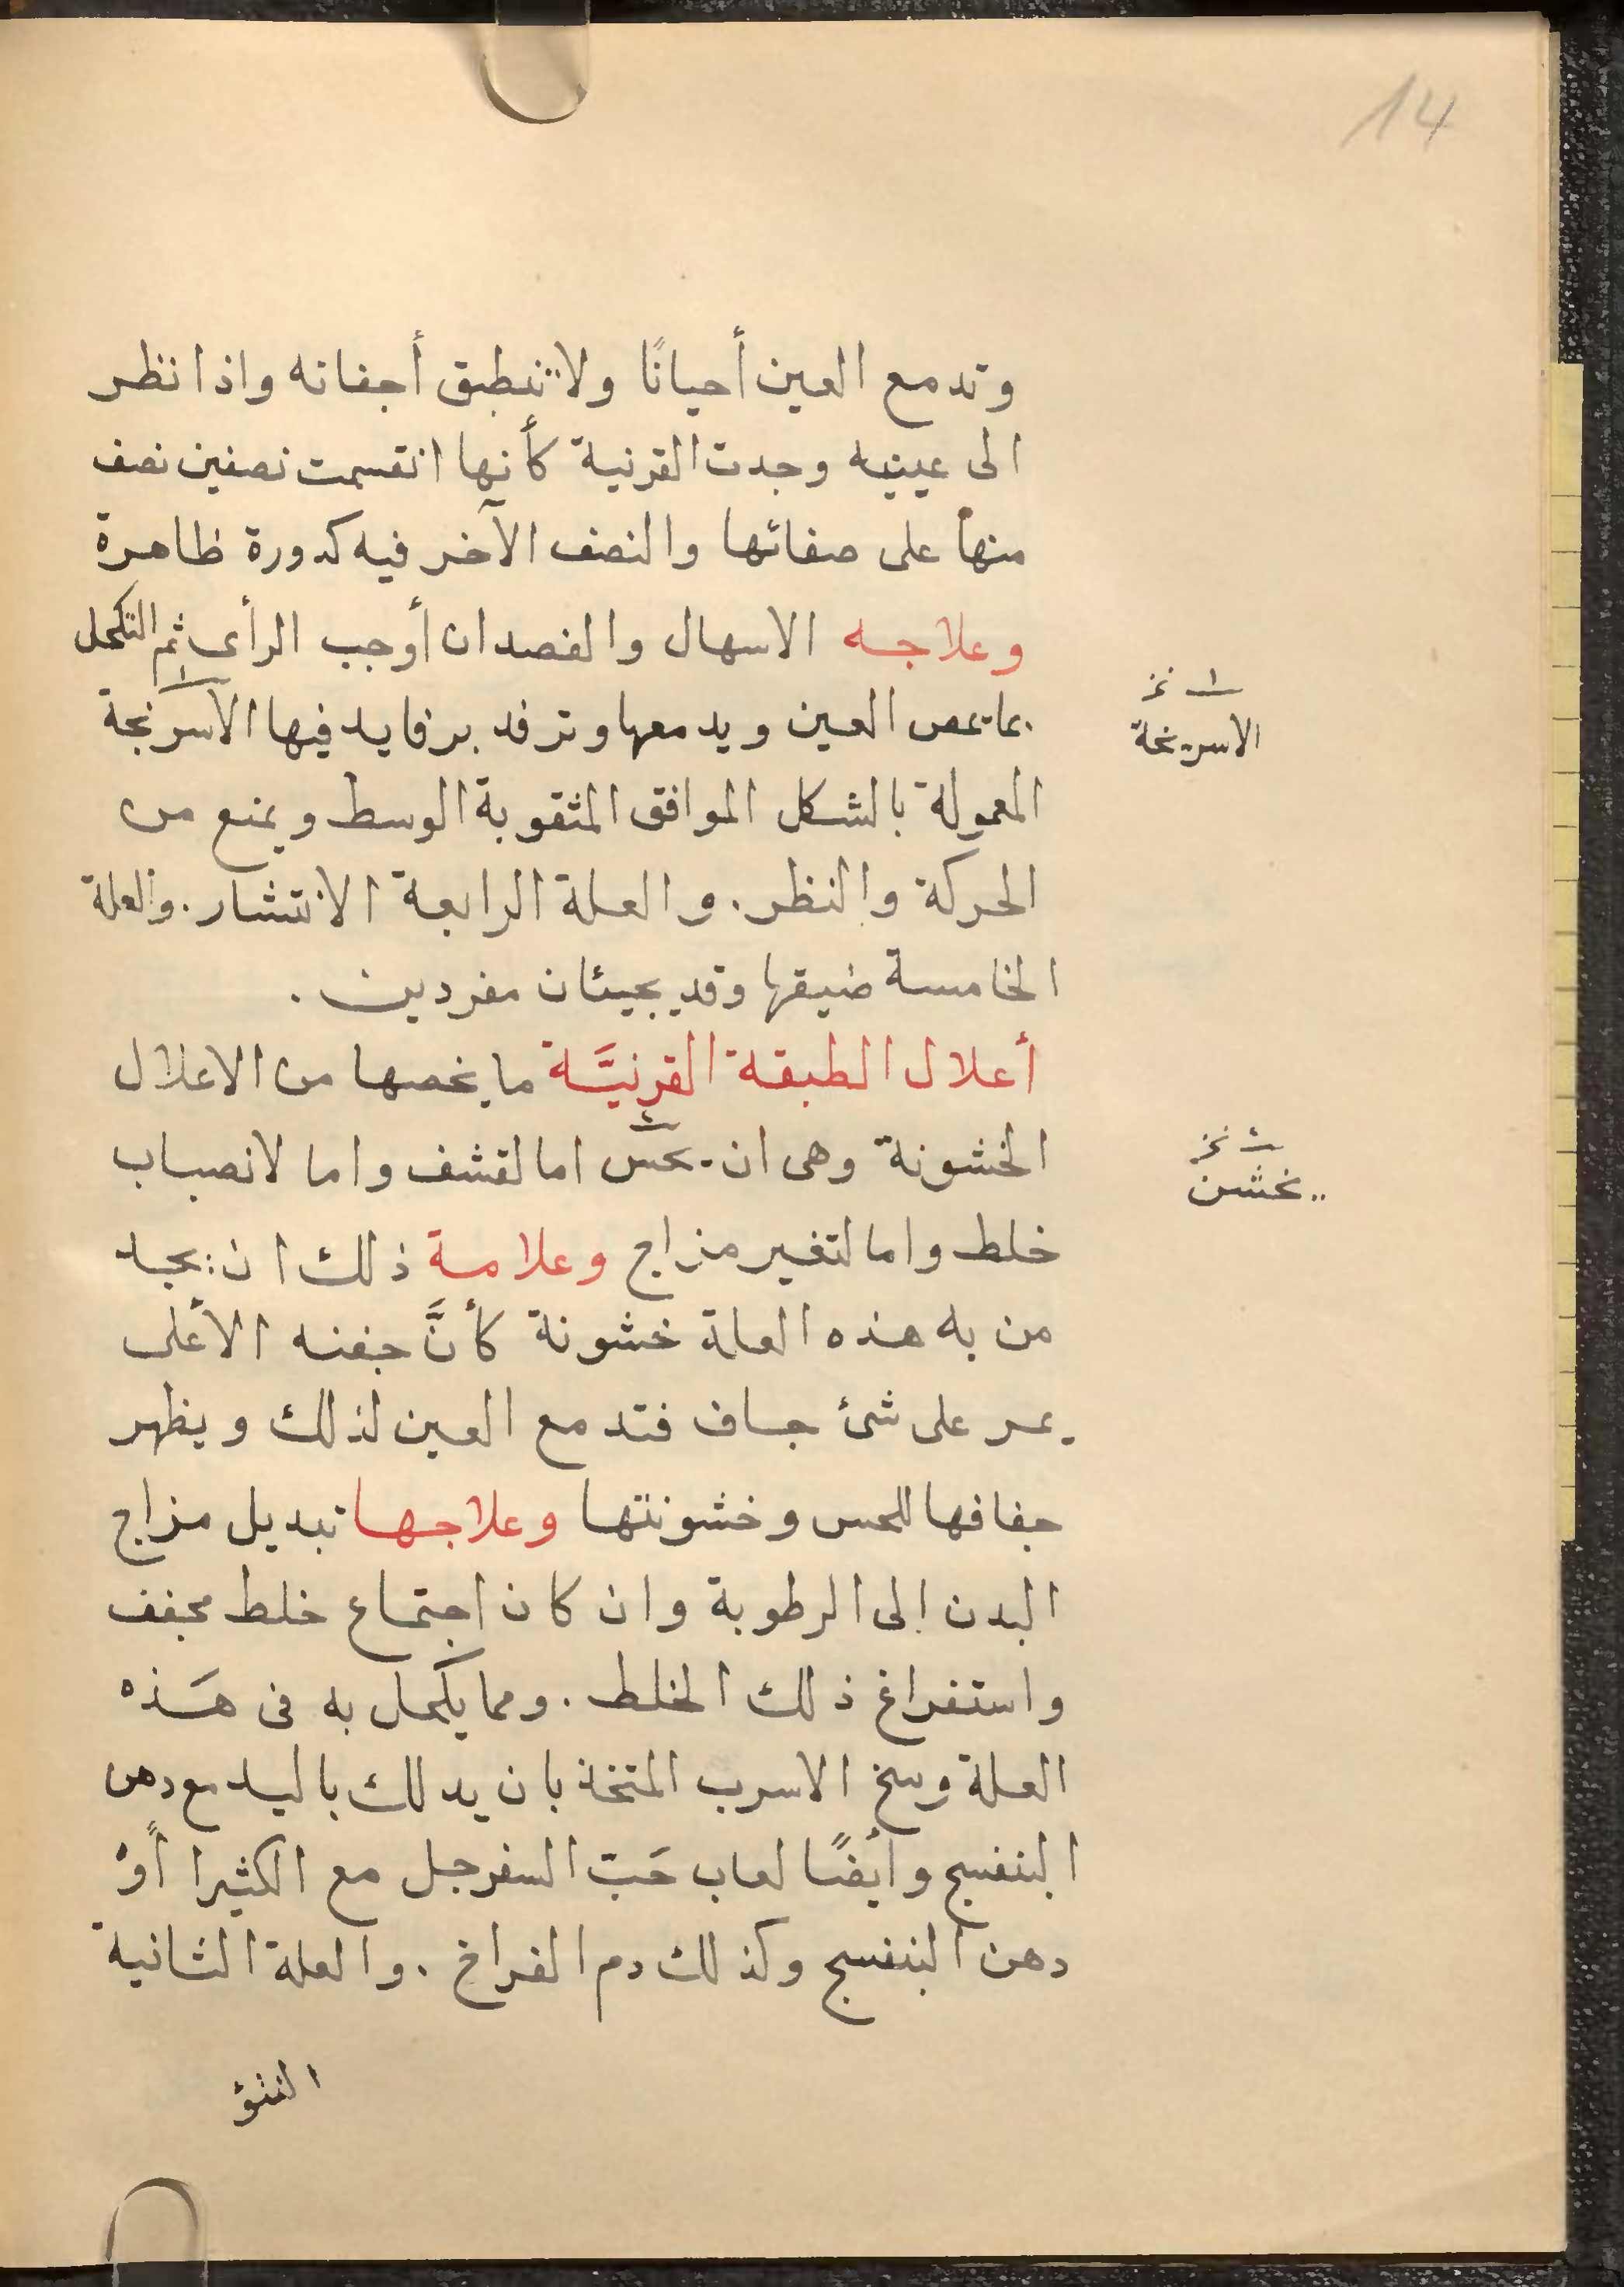 14
وتدمع العين أحيانًا ولا تنطبق أجفانه واذا نظر
الى عينيه وجدت القرنية كأنها انقسمت نصفين نصف
منها على صفائها والنصف الآخر فيه كدورة ظاهرة
وعلاجه الاسهال والفصد ان أوجب الرأى ثم التكحل
بما يمص العين ويدمعها وترفد برفايد فيها الاسرنجة
١ نخ
الاسريخة
المعمولة بالشكل الموافق المثقوبة الوسط ويمنع من
الحركة والنظر. والعلة الرابعة الانتشار. والعلة
الخامسة ضيقها وقد يجيئان مفردين.
أعلال الطبقة القرنيَّة ما يخصها من الاعلال
الخشونة وهى ان يحس اما لقشف واما لانصباب
نخ
يخشن
خلط واما لتغير مزاج وعلامة ذلك ان يجد
من به هذه العلة خشونة كأنَّ جفنه الأعلى
يمر على شئ جساف فتدمع العين لذلك ويظهر
جفافها للحس وخشونتها وعلاجها تبديل مزاج
البدن إلى الرطوبة وان كان اجتماع خلط مجفف
واستفراغ ذلك الخلط. ومما يكحل به فى هَذه
العلة وسخ الاسرب المتخذ بان يدلك باليد مع دهن
البنفسج وأيضًا لعاب حَبّ السفرجل مع الكثيرا أوْ
دهن البنفسج وكذلك دم الفراخ. والعلة الثانية
النتؤ